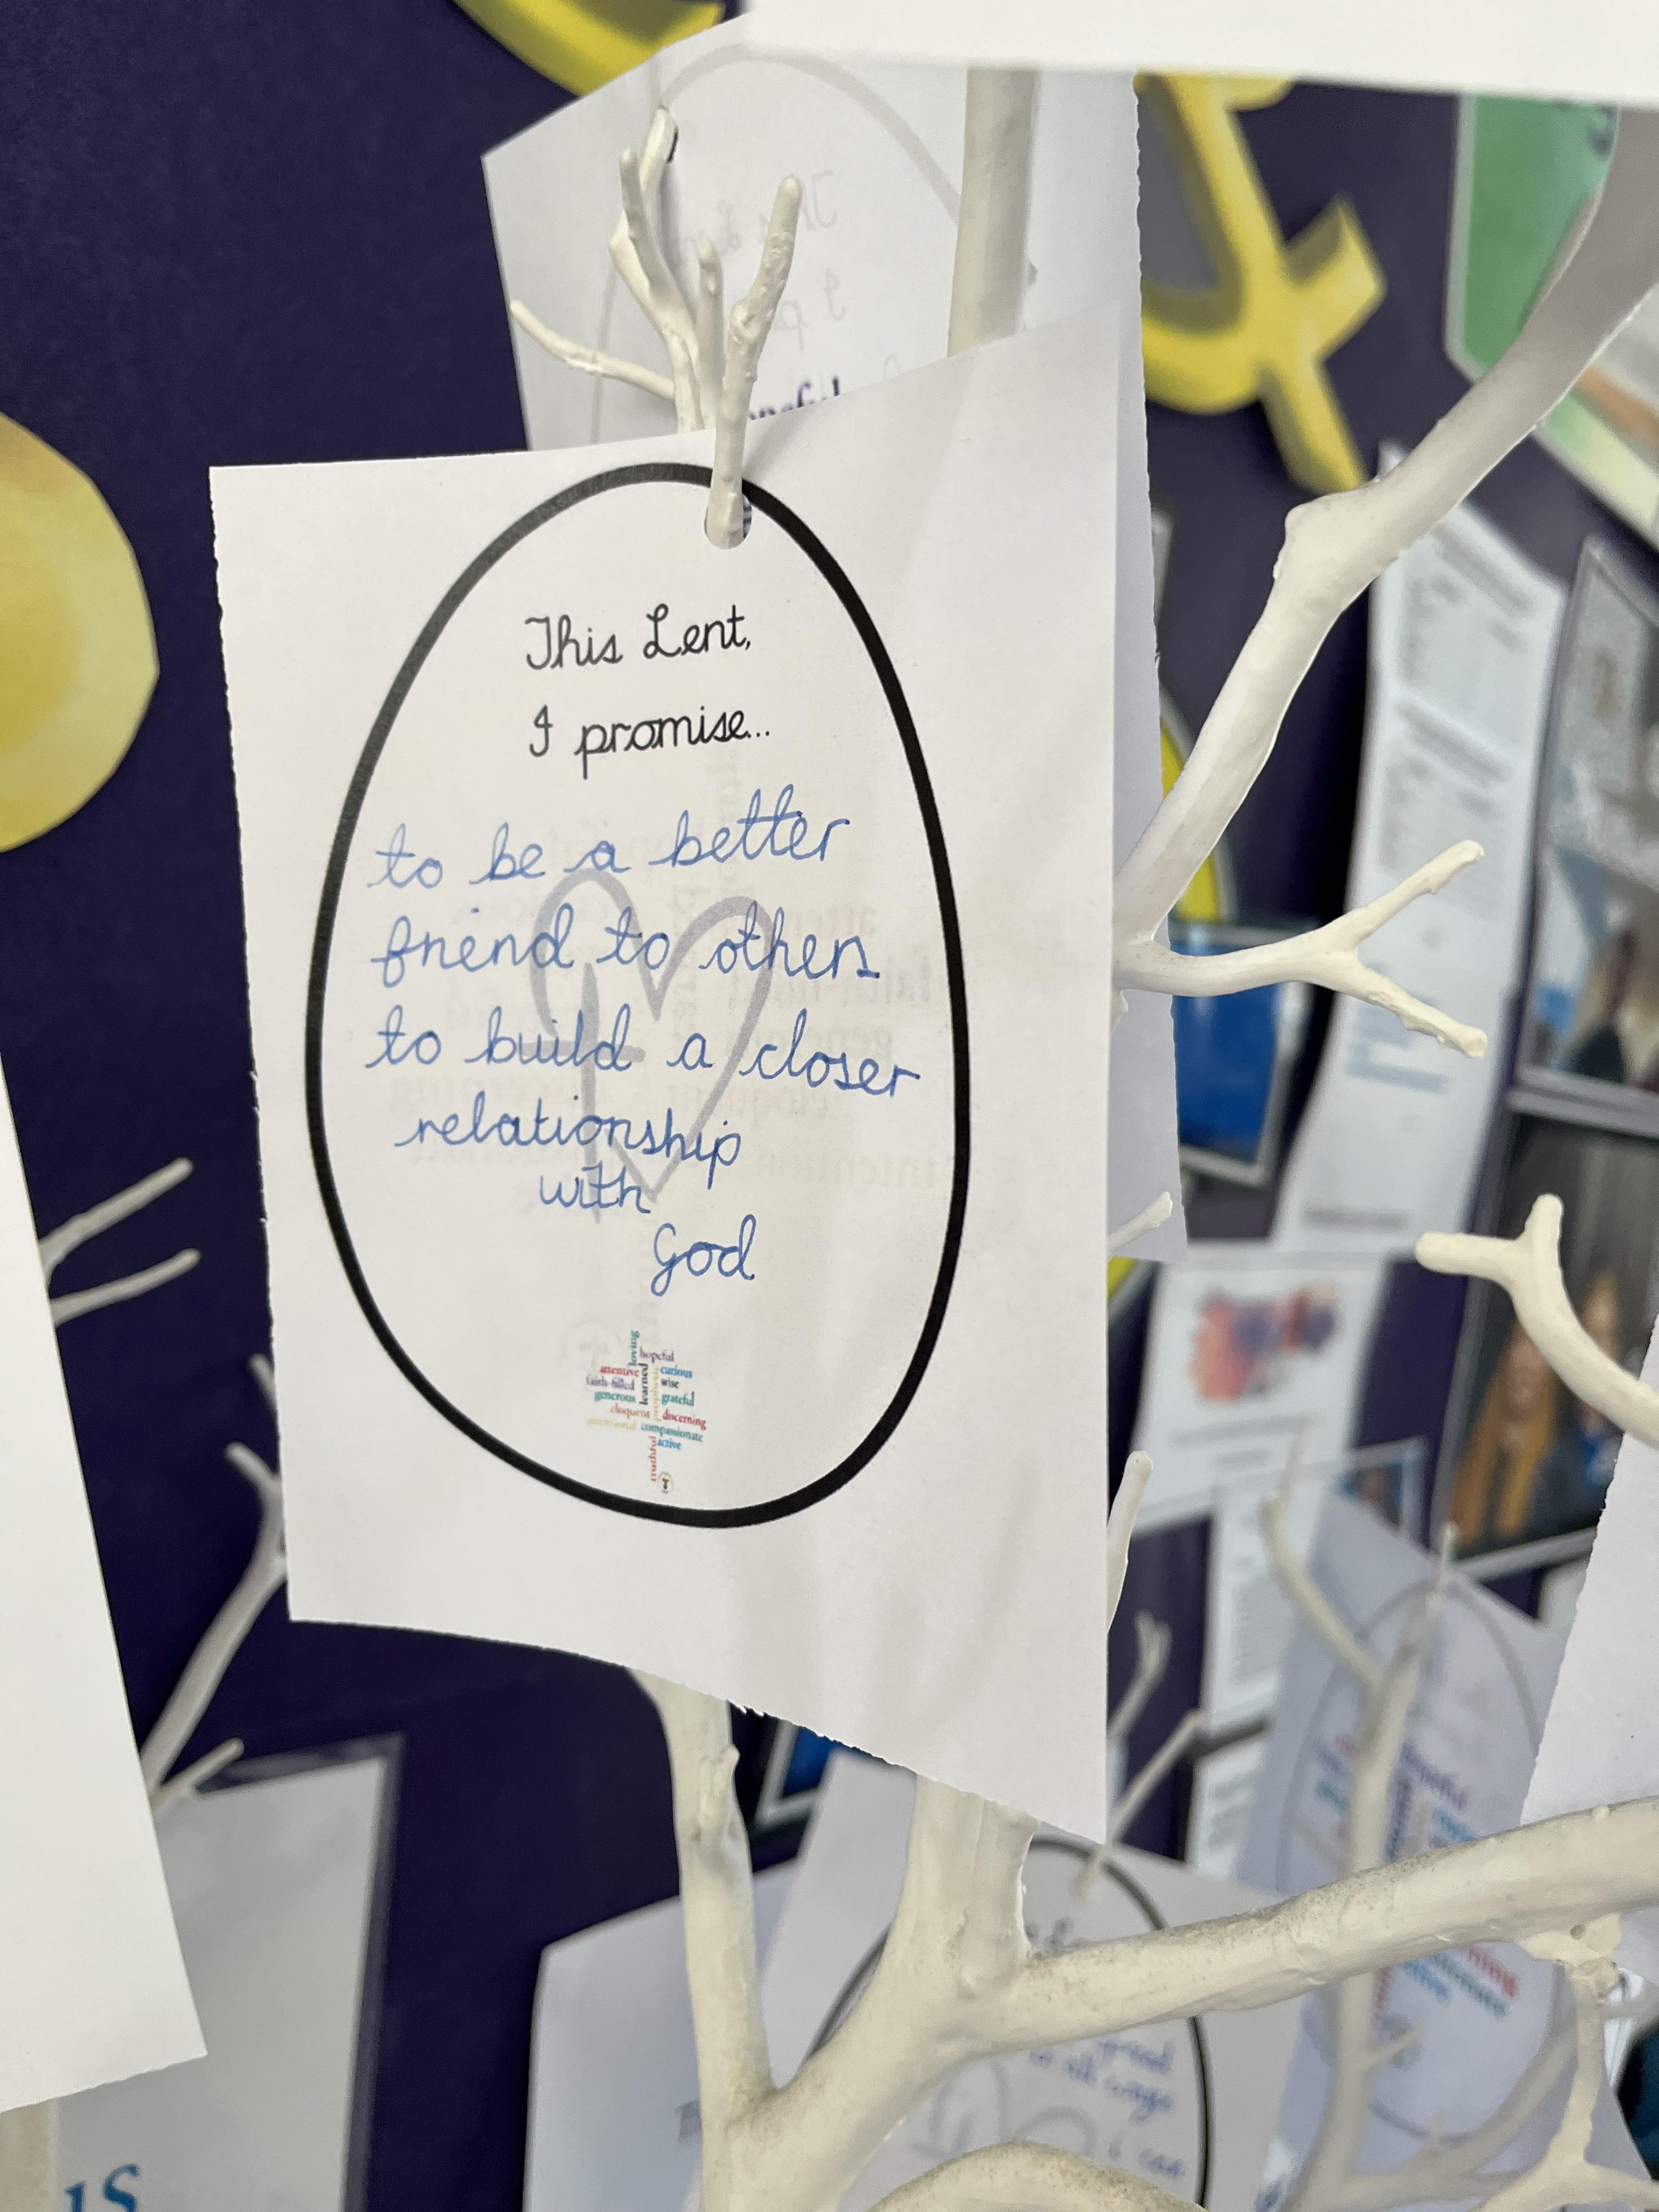 This Lent,
I promise...
to be a better
friend to others
to build a closer
relationship
with
God
loving
hopeful
attentive
curious
faith-filled
learned
wise
generous
prophetic
grateful
eloquent
discerning
intentional
compassionate
active
truthful
i can
us